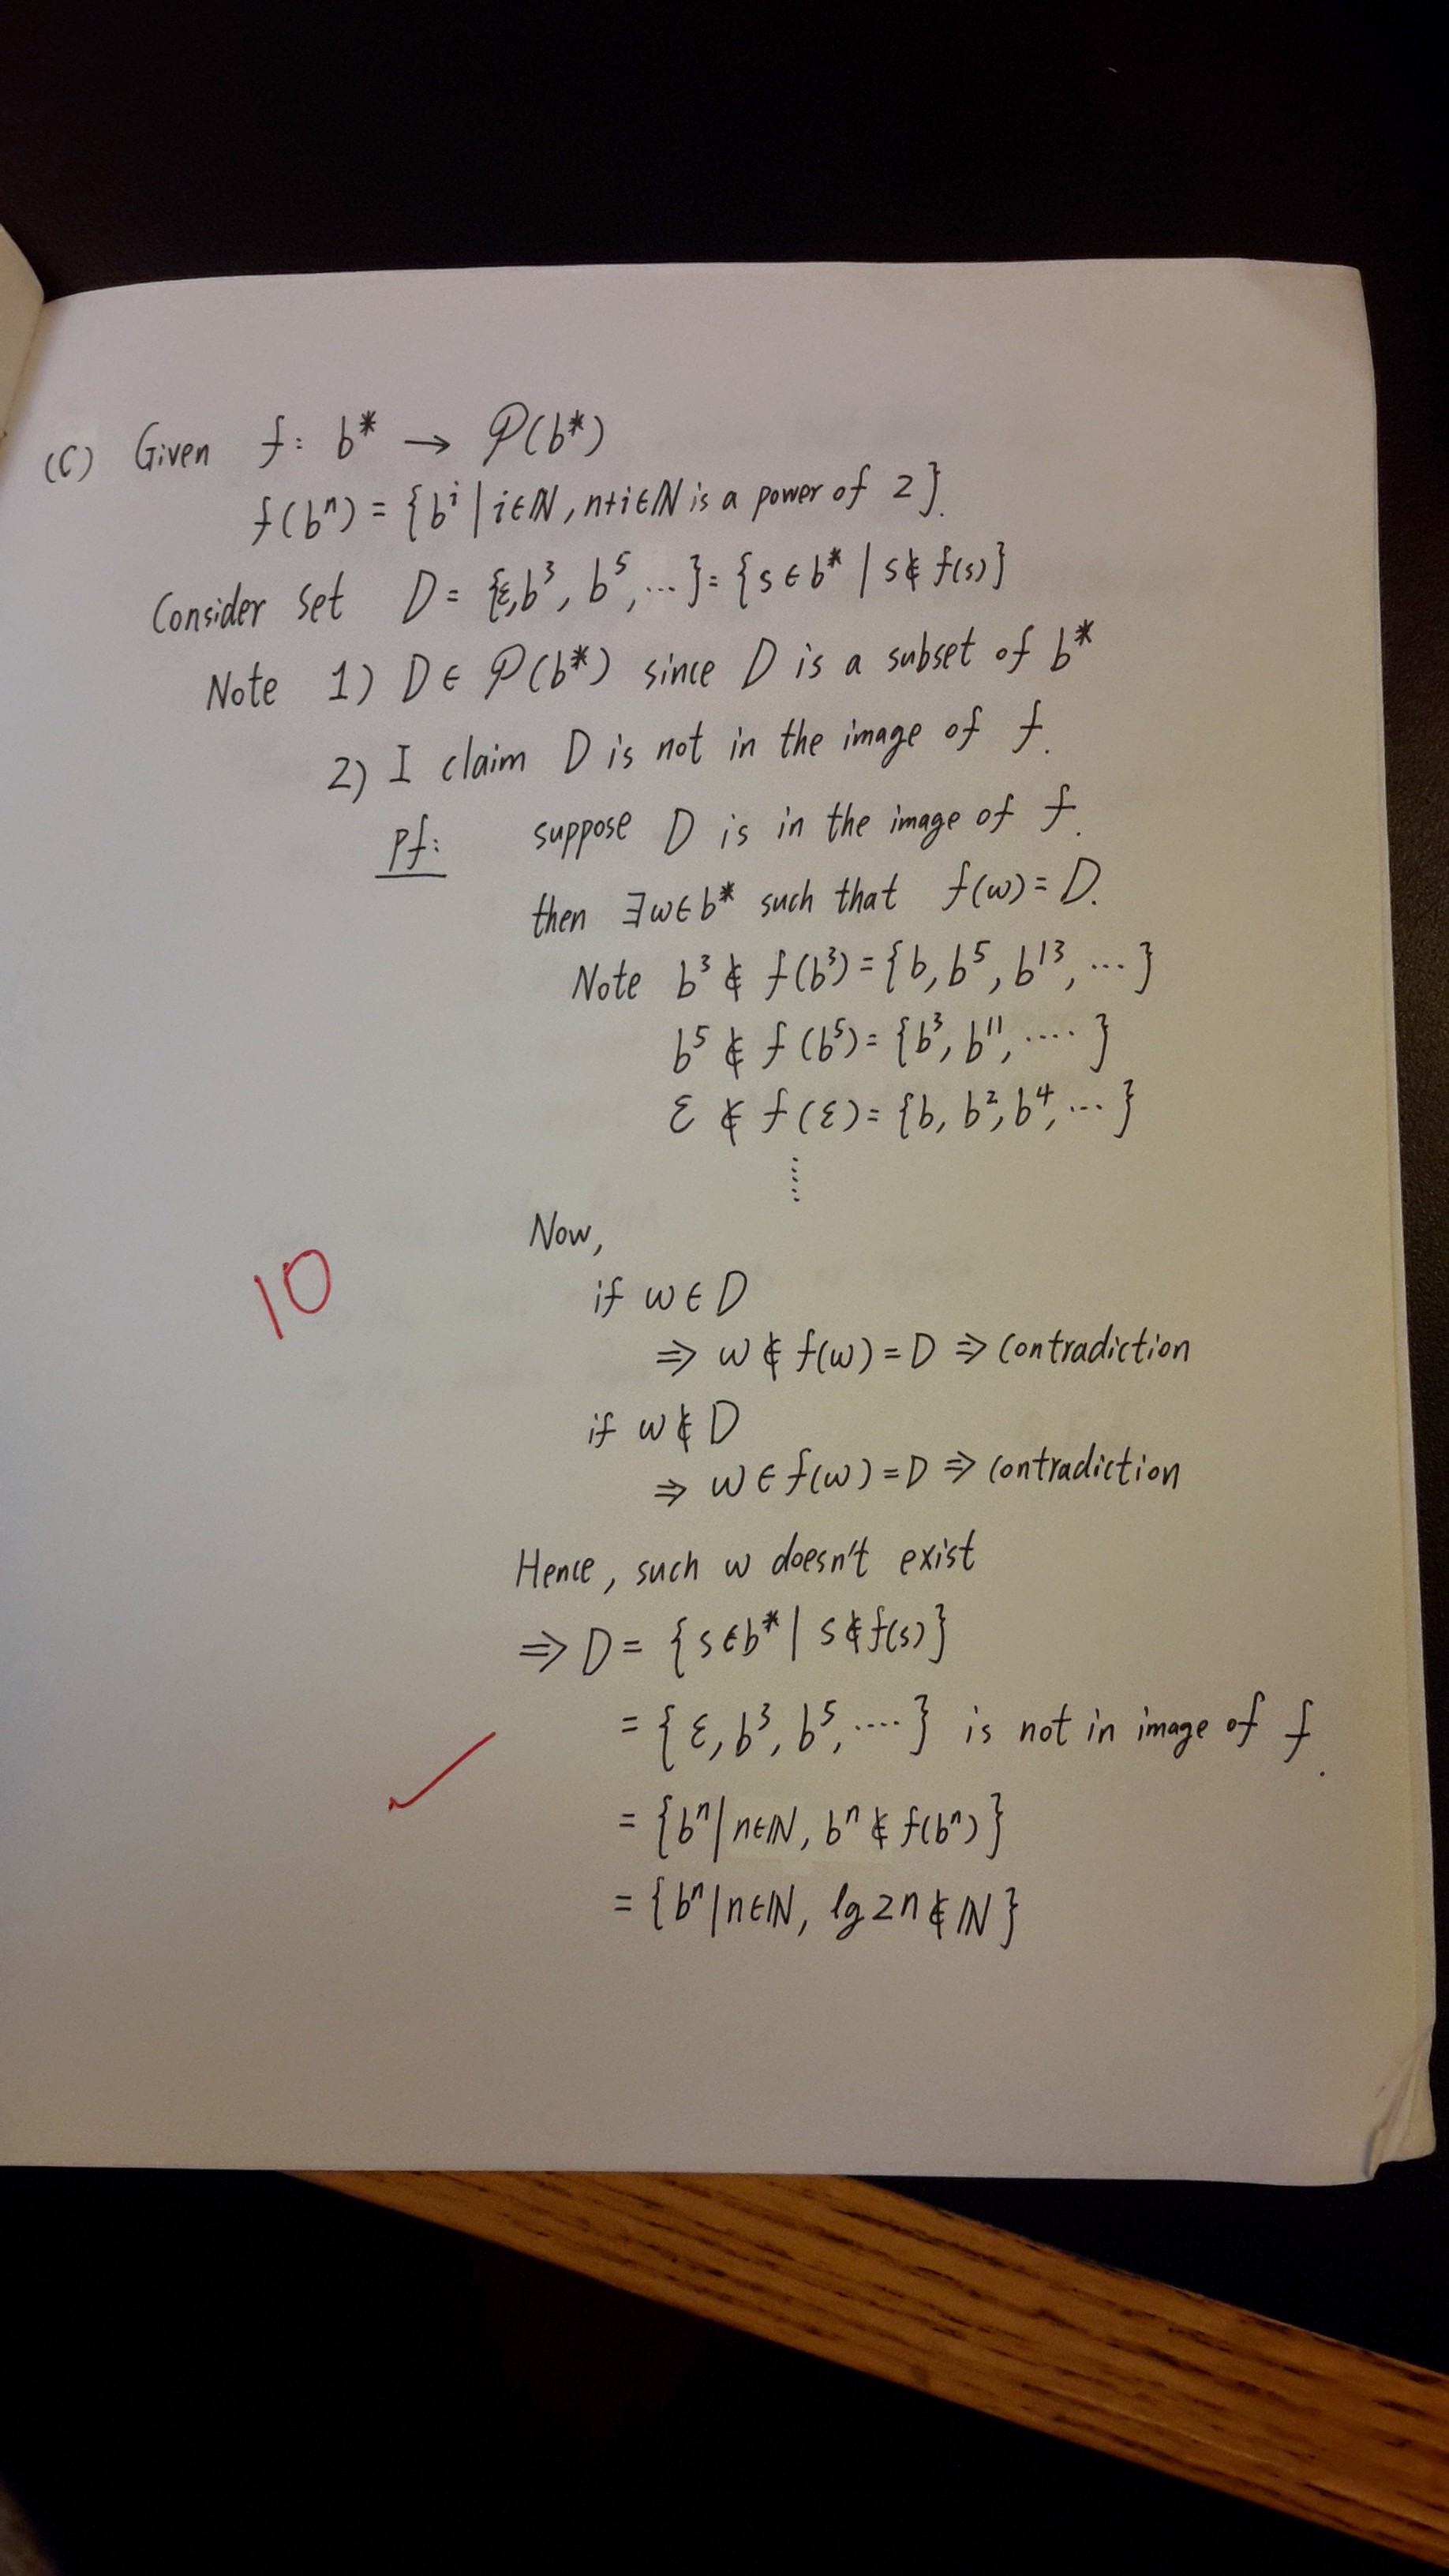 (C) Given f: b* → 𝒫(b*)
f(bⁿ) = {bⁱ | i∈ℕ, n+i∈ℕ is a power of 2}.
Consider set D = {ε, b³, b⁵, ...} = {s ∈ b* | s ∉ f(s)}
Note 1) D ∈ 𝒫(b*) since D is a subset of b*
2) I claim D is not in the image of f.
pf: suppose D is in the image of f.
then ∃w∈b* such that f(w) = D.
Note b³ ∉ f(b³) = {b, b⁵, b¹³, ...}
b⁵ ∉ f(b⁵) = {b³, b¹¹, ....}
ε ∉ f(ε) = {b, b², b⁴, ...}
⋮
Now,
if w ∈ D
⇒ w ∉ f(w) = D ⇒ contradiction
10
if w ∉ D
⇒ w ∈ f(w) = D ⇒ contradiction
Hence, such w doesn't exist
⇒ D = {s∈b* | s∉f(s)}
= {ε, b³, b⁵, ....} is not in image of f.
= {bⁿ | n∈ℕ, bⁿ ∉ f(bⁿ)}
= {bⁿ | n∈ℕ, lg 2n ∉ ℕ}